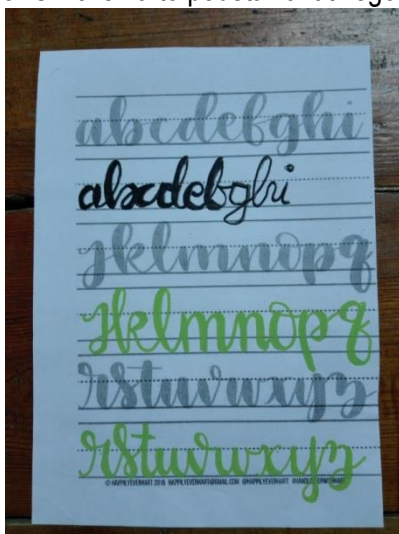 abcdefghi
abcdefghi
jklmnopq
jklmnopq
rstuvwxyz
rstuvwxyz
© HAPPILYEVERHART 2016 HAPPILYEVERHART@GMAIL.COM @HAPPILYEVERHART